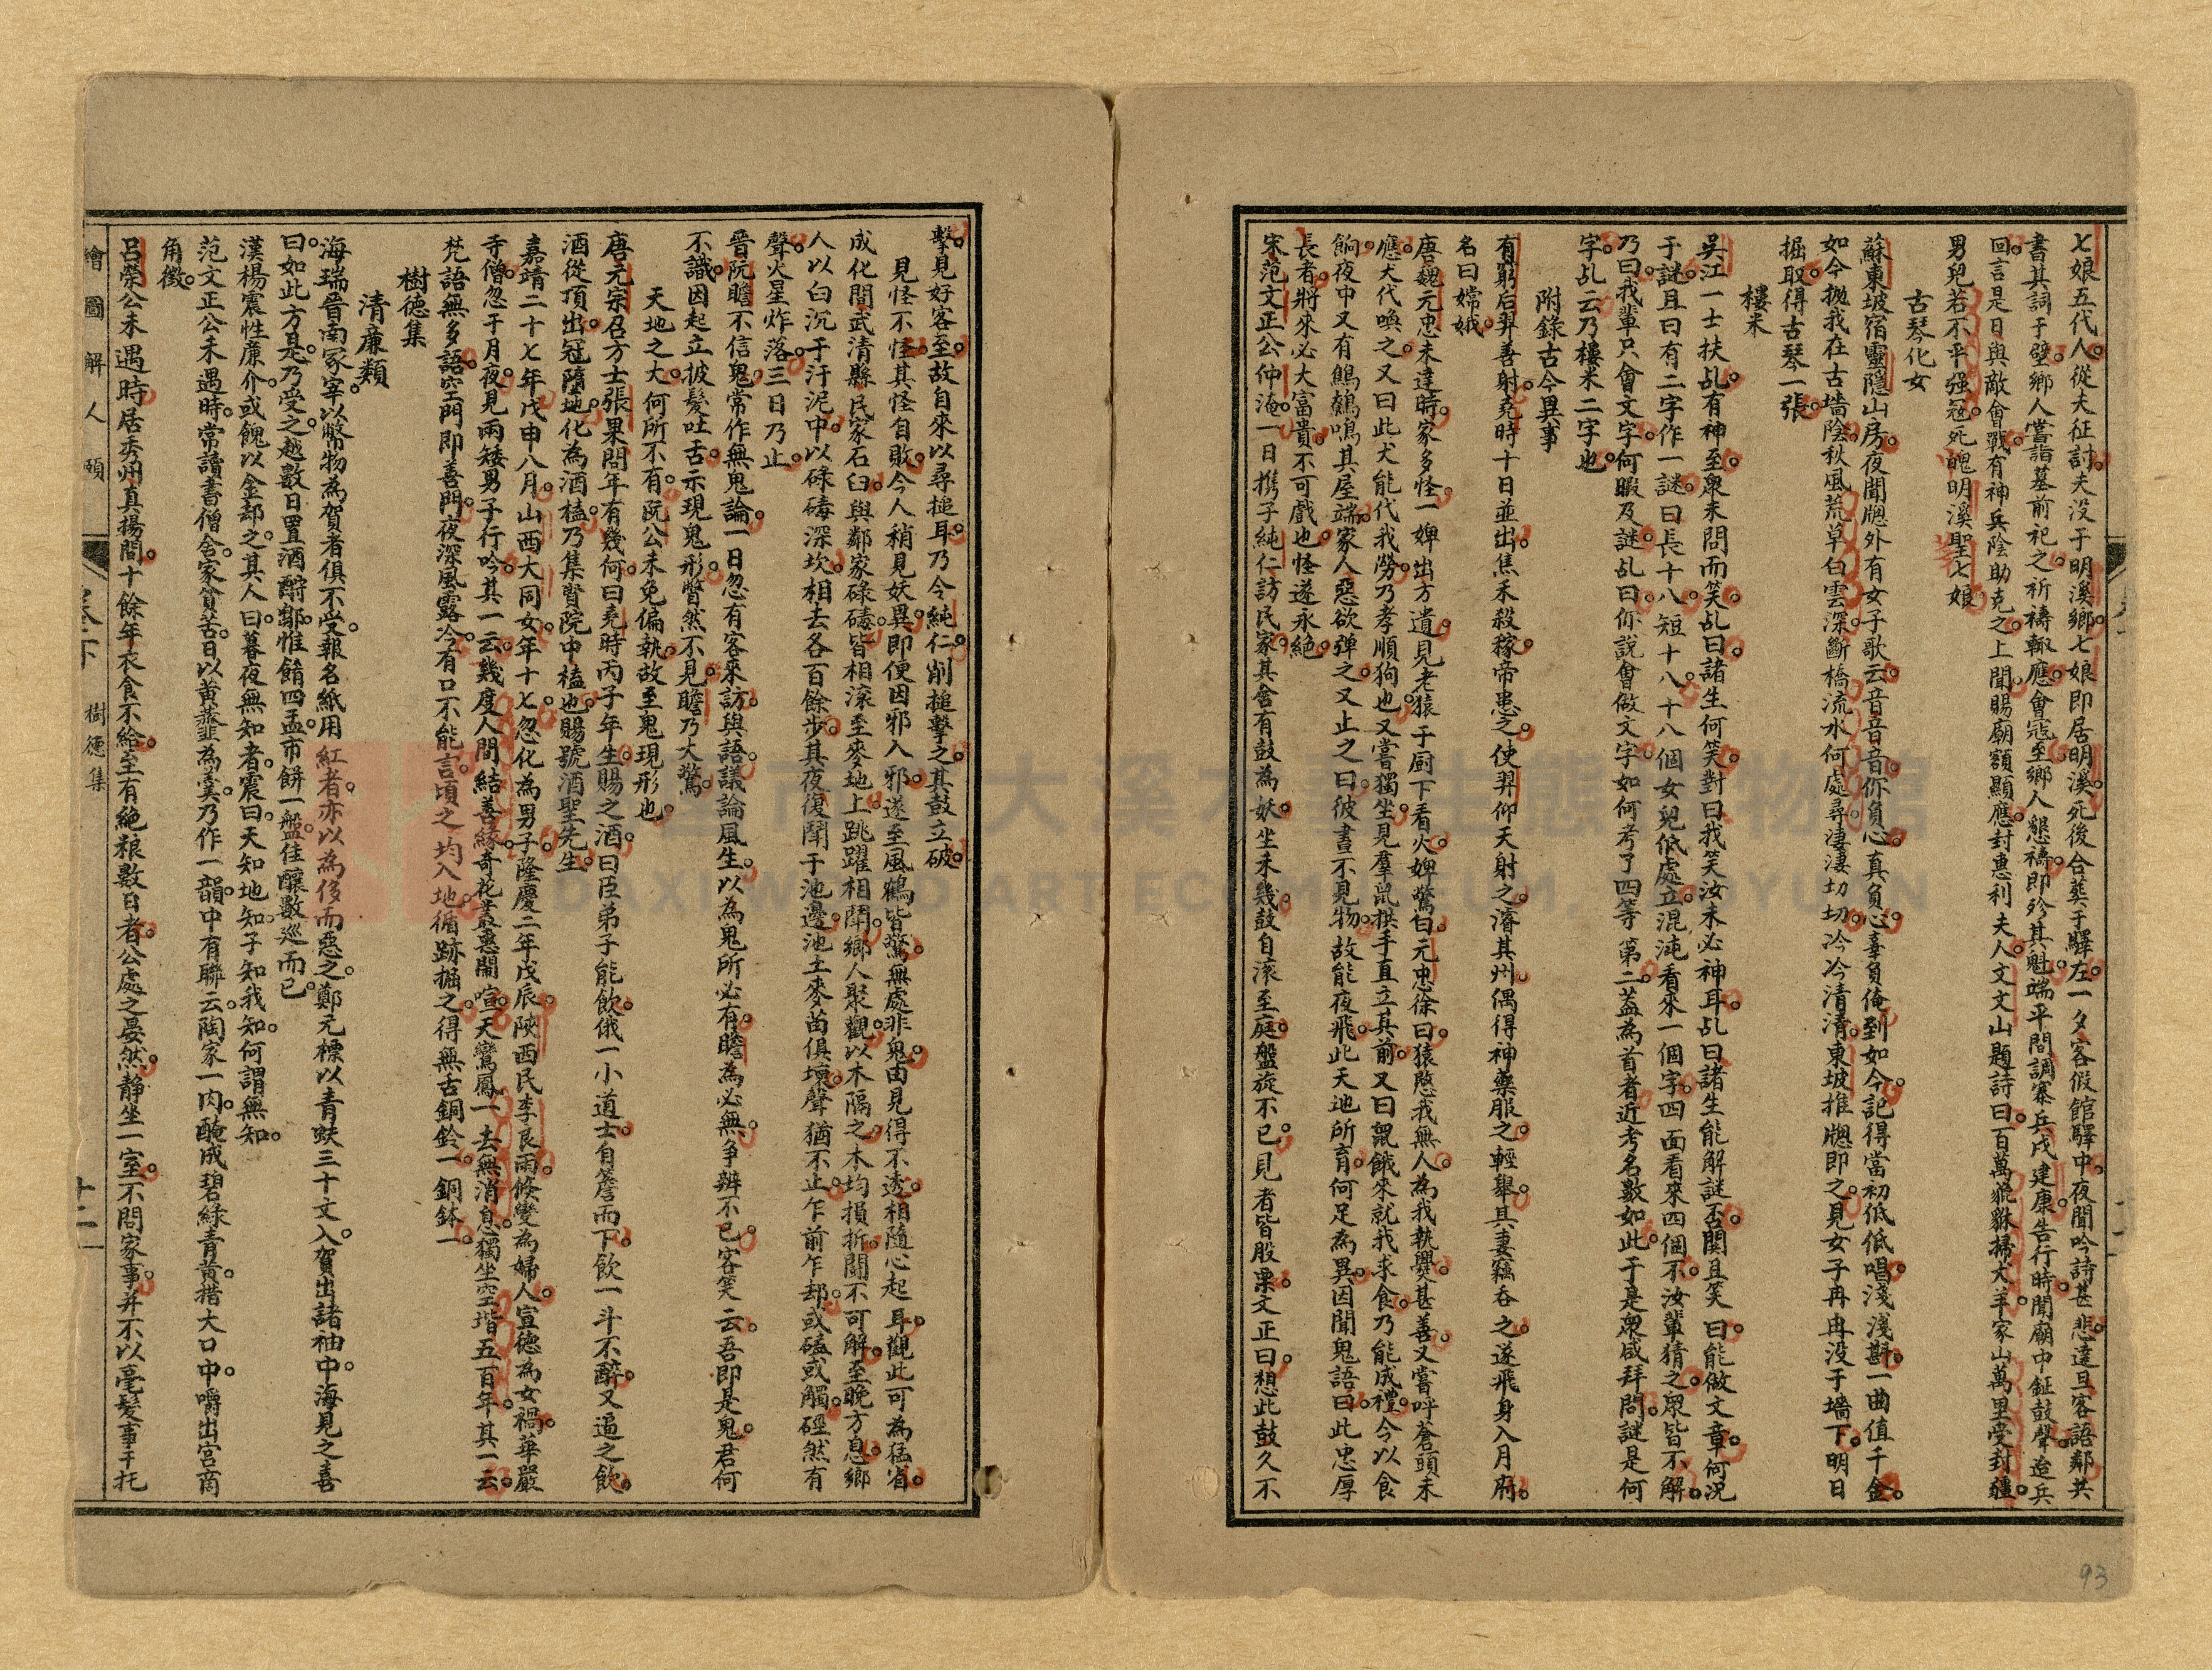 七娘五代人從夫征討夫没于明溪鄉七娘即居明溪死後合葬于驛左一夕客假館驛中夜聞吟詩甚悲達旦客語鄰共
書其詞于壁鄉人嘗詣墓前祀之祈禱輙應會寇至鄉人懇禱即殄其魁端平間調寨兵戍建康告行時聞廟中鉦鼓聲迨兵
回言是日與敵會戰有神兵陰助克之上聞賜廟額顯應封惠利夫人文文山題詩曰百萬貔貅掃犬羊家山萬里受封疆
男兒若不平强寇死愧明溪聖七娘
古琴化女
蘇東坡宿靈隱山房夜聞牕外有女子歌云音音音你負心真負心辜負俺到如今記得當初低低唱淺淺斟一曲值千金
如今拋我在古墻陰秋風荒草白雲深斷橋流水何處尋淒淒切切冷冷清清東坡推牕即之見女子再冉没于墻下明日
掘取得古琴一張
樓米
吳江一士扶乩有神至衆未問而笑乩曰諸生何笑對曰我笑汝未必神耳乩曰諸生能解謎否闃且笑曰能做文章何况
于謎且曰有二字作一謎曰長十八短十八十八個女兒低處立混沌看來一個字四面看來四個不汝輩猜之衆皆不解
乃曰我輩只會文字何暇及謎乩曰你說會做文字如何考了四等第二葢為首者近考名數如此于是衆咸拜問謎是何
字乩云乃樓米二字也
附錄古今異事
有窮后羿善射堯時十日並出焦禾殺稼帝患之使羿仰天射之濬其州偶得神藥服之輕舉其妻竊吞之遂飛身入月府
名曰嫦娥
唐魏元忠未達時家多怪一婢出方遺見老猿于厨下看火婢驚白元忠徐曰猿愍我無人為我執爨甚善又嘗呼蒼頭未
應犬代喚之又曰此犬能代我勞乃孝順狗也又嘗獨坐見羣鼠拱手直立其前又曰鼠餓來就我求食乃能成禮今以食
餉夜中又有鵂鶹鳴其屋端家人惡欲彈之又止之曰彼晝不見物故能夜飛此天地所育何足為異因聞鬼語曰此忠厚
長者將來必大富貴不可戲也怪遂永絶
宋范文正公仲淹一日携子純仁訪民家其舍有鼓為妖坐未幾鼓自滚至庭盤旋不已見者皆股栗文正曰想此鼓久不
擊見好客至故自來以尋搥耳乃令純仁削搥擊之其鼓立破
見怪不怪其怪自敗今人稍見妖異即便因邪入邪遂至風鶴皆驚無處非鬼由見得不透相隨心起耳觀此可為猛省
成化間武清縣民家石臼與鄰家碌碡皆相滚至麥地上跳躍相鬪鄉人聚觀以木隔之木均損折鬪不可解至晚方息鄉
人以白沉于汙泥中以碌碡深坎相去各百餘步其夜復鬪于池邊池土麥苗俱壞聲猶不止乍前乍却或磕或觸硜然有
聲火星炸落三日乃止
晉阮瞻不信鬼常作無鬼論一日忽有客來訪與語議論風生以為鬼所必有瞻為必無争辨不已客笑云吾即是鬼君何
不識因起立披髮吐舌示現鬼形瞥然不見瞻乃大驚
天地之大何所不有阮公未免偏執故至鬼現形也
唐元宗召方士張果問年有幾何曰堯時丙子年生賜之酒曰臣弟子能飲俄一小道士自簷而下飲一斗不醉又逼之飲
酒從頂出冠隋地化為酒榼乃集賢院中榼也賜號酒聖先生
嘉靖二十七年戊申八月山西大同女年十七忽化為男子隆慶二年戊辰陝西民李良雨倏變為婦人宣德為女禍華嚴
寺僧忽于月夜見兩矮男子行吟其一云幾度人間結善緣奇花叢裏鬧喧天鸞鳳一去無消息獨坐空堦五百年其一云
梵語無多語空門即善門夜深風露冷有口不能言頃之均入地循跡掘之得無舌銅鈴一銅鉢一
樹德集
清廉類
海瑞晉南冢宰以幣物為賀者俱不受報名紙用紅者亦以為侈而惡之鄭元標以青蚨三十文入賀出諸袖中海見之喜
曰如此方是乃受之越數日置酒酹鄒惟餚四盂市餅一盤佳釀數巡而已
漢楊震性廉介或餽以金却之其人曰暮夜無知者震曰天知地知子知我知何謂無知
范文正公未遇時常讀書僧舍家貧苦日以黄虀韲為羹乃作一韻中有聯云陶家一肉醃成碧綠青黄措大口中嚼出宮商
角徵
呂榮公未遇時居秀州真揚間十餘年衣食不給至有絶粮數日者公處之晏然静坐一室不問家事并不以毫髮事干托
繪圖解人頤
卷下
樹德集
十二
93